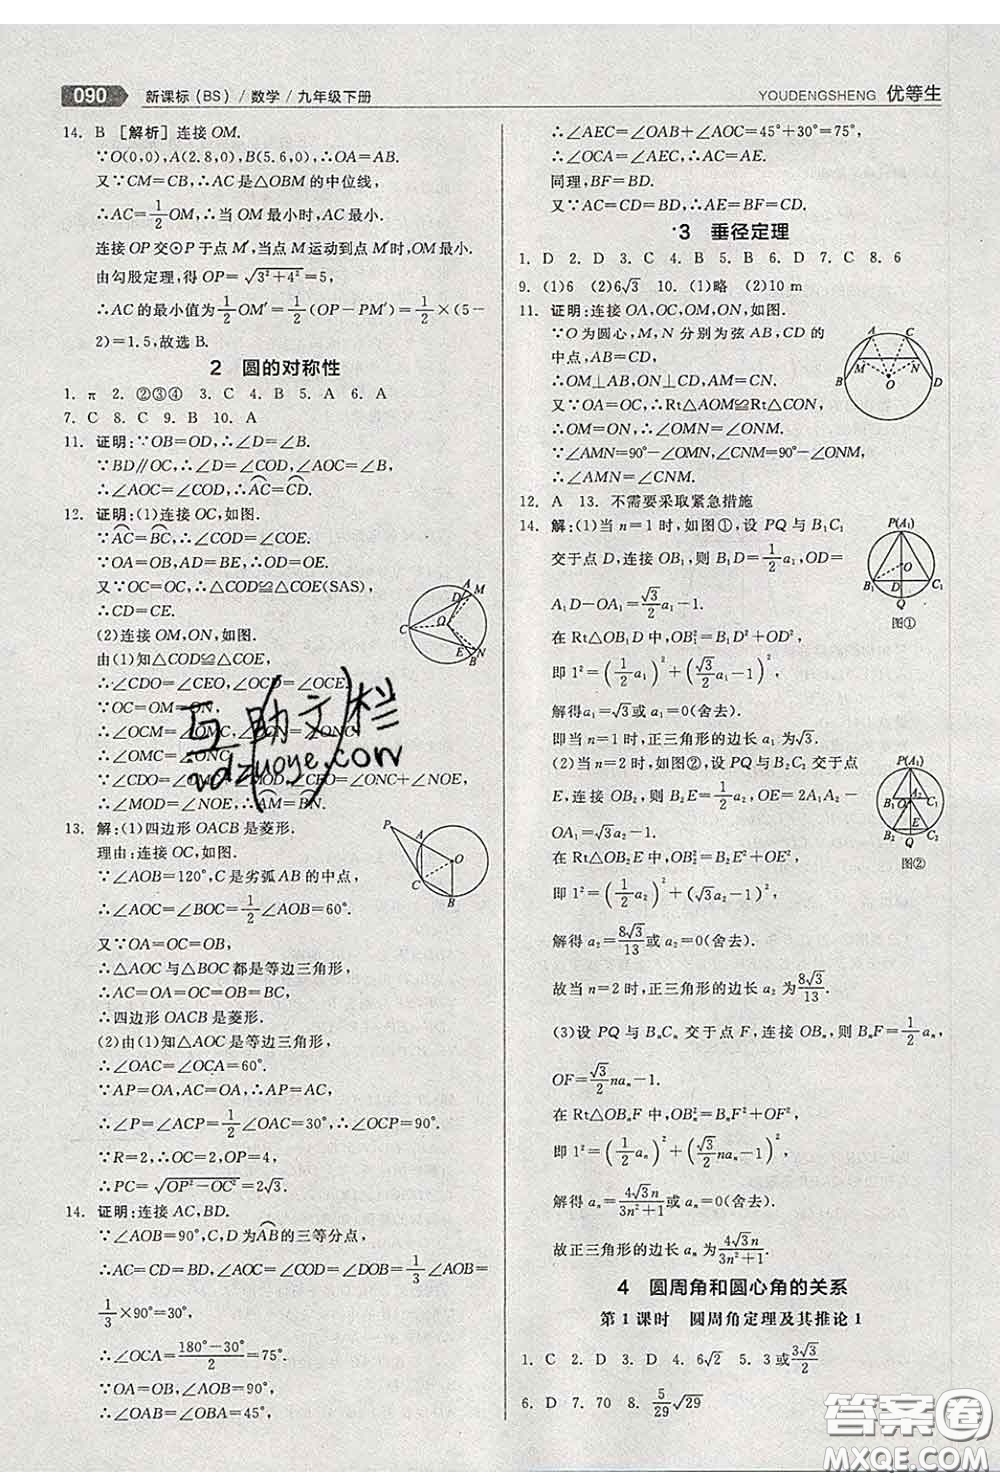 090 新课标(BS)/数学/九年级下册
YOUDENGSHENG 优等生
14. B [解析]连接OM.
∵O(0,0),A(2.8,0),B(5.6,0),∴OA=AB.
又∵CM=CB,∴AC是△OBM的中位线,
∴AC=1/2OM,∴当OM最小时,AC最小.
连接OP交⊙P于点M′,当点M运动到点M′时,OM最小.
由勾股定理,得OP=√(3²+4²)=5,
∴AC的最小值为1/2OM′=1/2(OP-PM′)=1/2×(5-
2)=1.5,故选B.
2 圆的对称性
1. π 2. ②③④ 3. C 4. B 5. A 6. A
7. C 8. C 9. B 10. A
11. 证明:∵OB=OD,∴∠D=∠B.
∵BD∥OC,∴∠D=∠COD,∠AOC=∠B,
∴∠AOC=∠COD,∴AC=CD.
12. 证明:(1)连接OC,如图.
∵AC=BC,∴∠COD=∠COE.
∵OA=OB,AD=BE,∴OD=OE.
又∵OC=OC,∴△COD≌△COE(SAS),
∴CD=CE.
(2)连接OM,ON,如图.
由(1)知△COD≌△COE,
∴∠CDO=∠CEO,∠OCD=∠OCE.
∵OC=OM=ON,
∴∠OCM=∠OMC,∠OCN=∠ONC,
∴∠OMC=∠ONC.
∵∠CDO=∠OMC+∠MOD,∠CEO=∠ONC+∠NOE,
∴∠MOD=∠NOE,∴AM=BN.
13. 解:(1)四边形OACB是菱形.
理由:连接OC,如图.
∵∠AOB=120°,C是劣弧AB的中点,
∴∠AOC=∠BOC=1/2∠AOB=60°.
又∵OA=OC=OB,
∴△AOC与△BOC都是等边三角形,
∴OA=AC=OC=OB=BC,
∴四边形OACB是菱形.
(2)由(1)知△AOC是等边三角形,
∴∠OAC=∠OCA=60°.
∵AP=OA,OA=AC,∴AP=AC,
∴∠P=∠ACP=1/2∠OAC=30°,
∴∠OCP=90°.
∵R=2,∴OC=2,OP=4,
∴PC=√(OP²-OC²)=2√3.
14. 证明:连接AC,BD.
∵∠AOB=90°,C,D为AB的三等分点,
∴AC=CD=BD,∠AOC=∠COD=∠BOD=1/3∠AOB=
1/3×90°=30°,
∴∠OCA=(180°-30°)/2=75°.
∵OA=OB,∠AOB=90°,
∴∠OAB=∠OBA=45°,
∴∠AEC=∠OAB+∠AOC=45°+30°=75°,
∴∠OCA=∠AEC,∴AC=AE.
同理,BF=BD.
又∵AC=CD=BD,∴AE=BF=CD.
*3 垂径定理
1. D 2. D 3. C 4. B 5. B 6. D 7. C 8. 6
9. (1)6 (2)6√3 10. (1)略 (2)10 m
11. 证明:连接OA,OC,OM,ON,如图.
∵O为圆心,M,N分别为弦AB,CD的
中点,AB=CD,
∴OM⊥AB,ON⊥CD,AM=CN.
∵OA=OC,∴Rt△AOM≌Rt△CON,
∴OM=ON,∴∠OMN=∠ONM.
∵∠AMN=90°-∠OMN,∠CNM=90°-∠ONM,
∴∠AMN=∠CNM.
12. A 13. 不需要采取紧急措施
14. 解:(1)当n=1时,如图①,设PQ与B₁C₁
交于点D,连接OB₁,则B₁D=1/2a₁,OD=
A₁D-OA₁=√3/2a₁-1.
在Rt△OB₁D中,OB₁²=B₁D²+OD²,
即1²=(1/2a₁)²+(√3/2a₁-1)²,
解得a₁=√3或a₁=0(舍去).
即当n=1时,正三角形的边长a₁为√3.
(2)当n=2时,如图②,设PQ与B₂C₂交于点
E,连接OB₂,则B₂E=1/2a₂,OE=2A₁A₂-
OA₁=√3a₂-1.
在Rt△OB₂E中,OB₂²=B₂E²+OE²,
即1²=(1/2a₂)²+(√3a₂-1)²,
解得a₂=8√3/13或a₂=0(舍去).
故当n=2时,正三角形的边长a₂为8√3/13.
(3)设PQ与BₙCₙ交于点F,连接OBₙ,则BₙF=1/2aₙ,
OF=√3/2naₙ-1.
在Rt△OBₙF中,OBₙ²=BₙF²+OF²,
即1²=(1/2aₙ)²+(√3/2naₙ-1)²,
解得aₙ=4√3n/(3n²+1)或aₙ=0(舍去).
故正三角形的边长aₙ为4√3n/(3n²+1).
4 圆周角和圆心角的关系
第1课时 圆周角定理及其推论1
1. C 2. D 3. D 4. 6√2 5. 3或3√3/2
6. D 7. 70 8. 5/29√29
图①
图②
互助文栏
答案圈
MXQE.COM